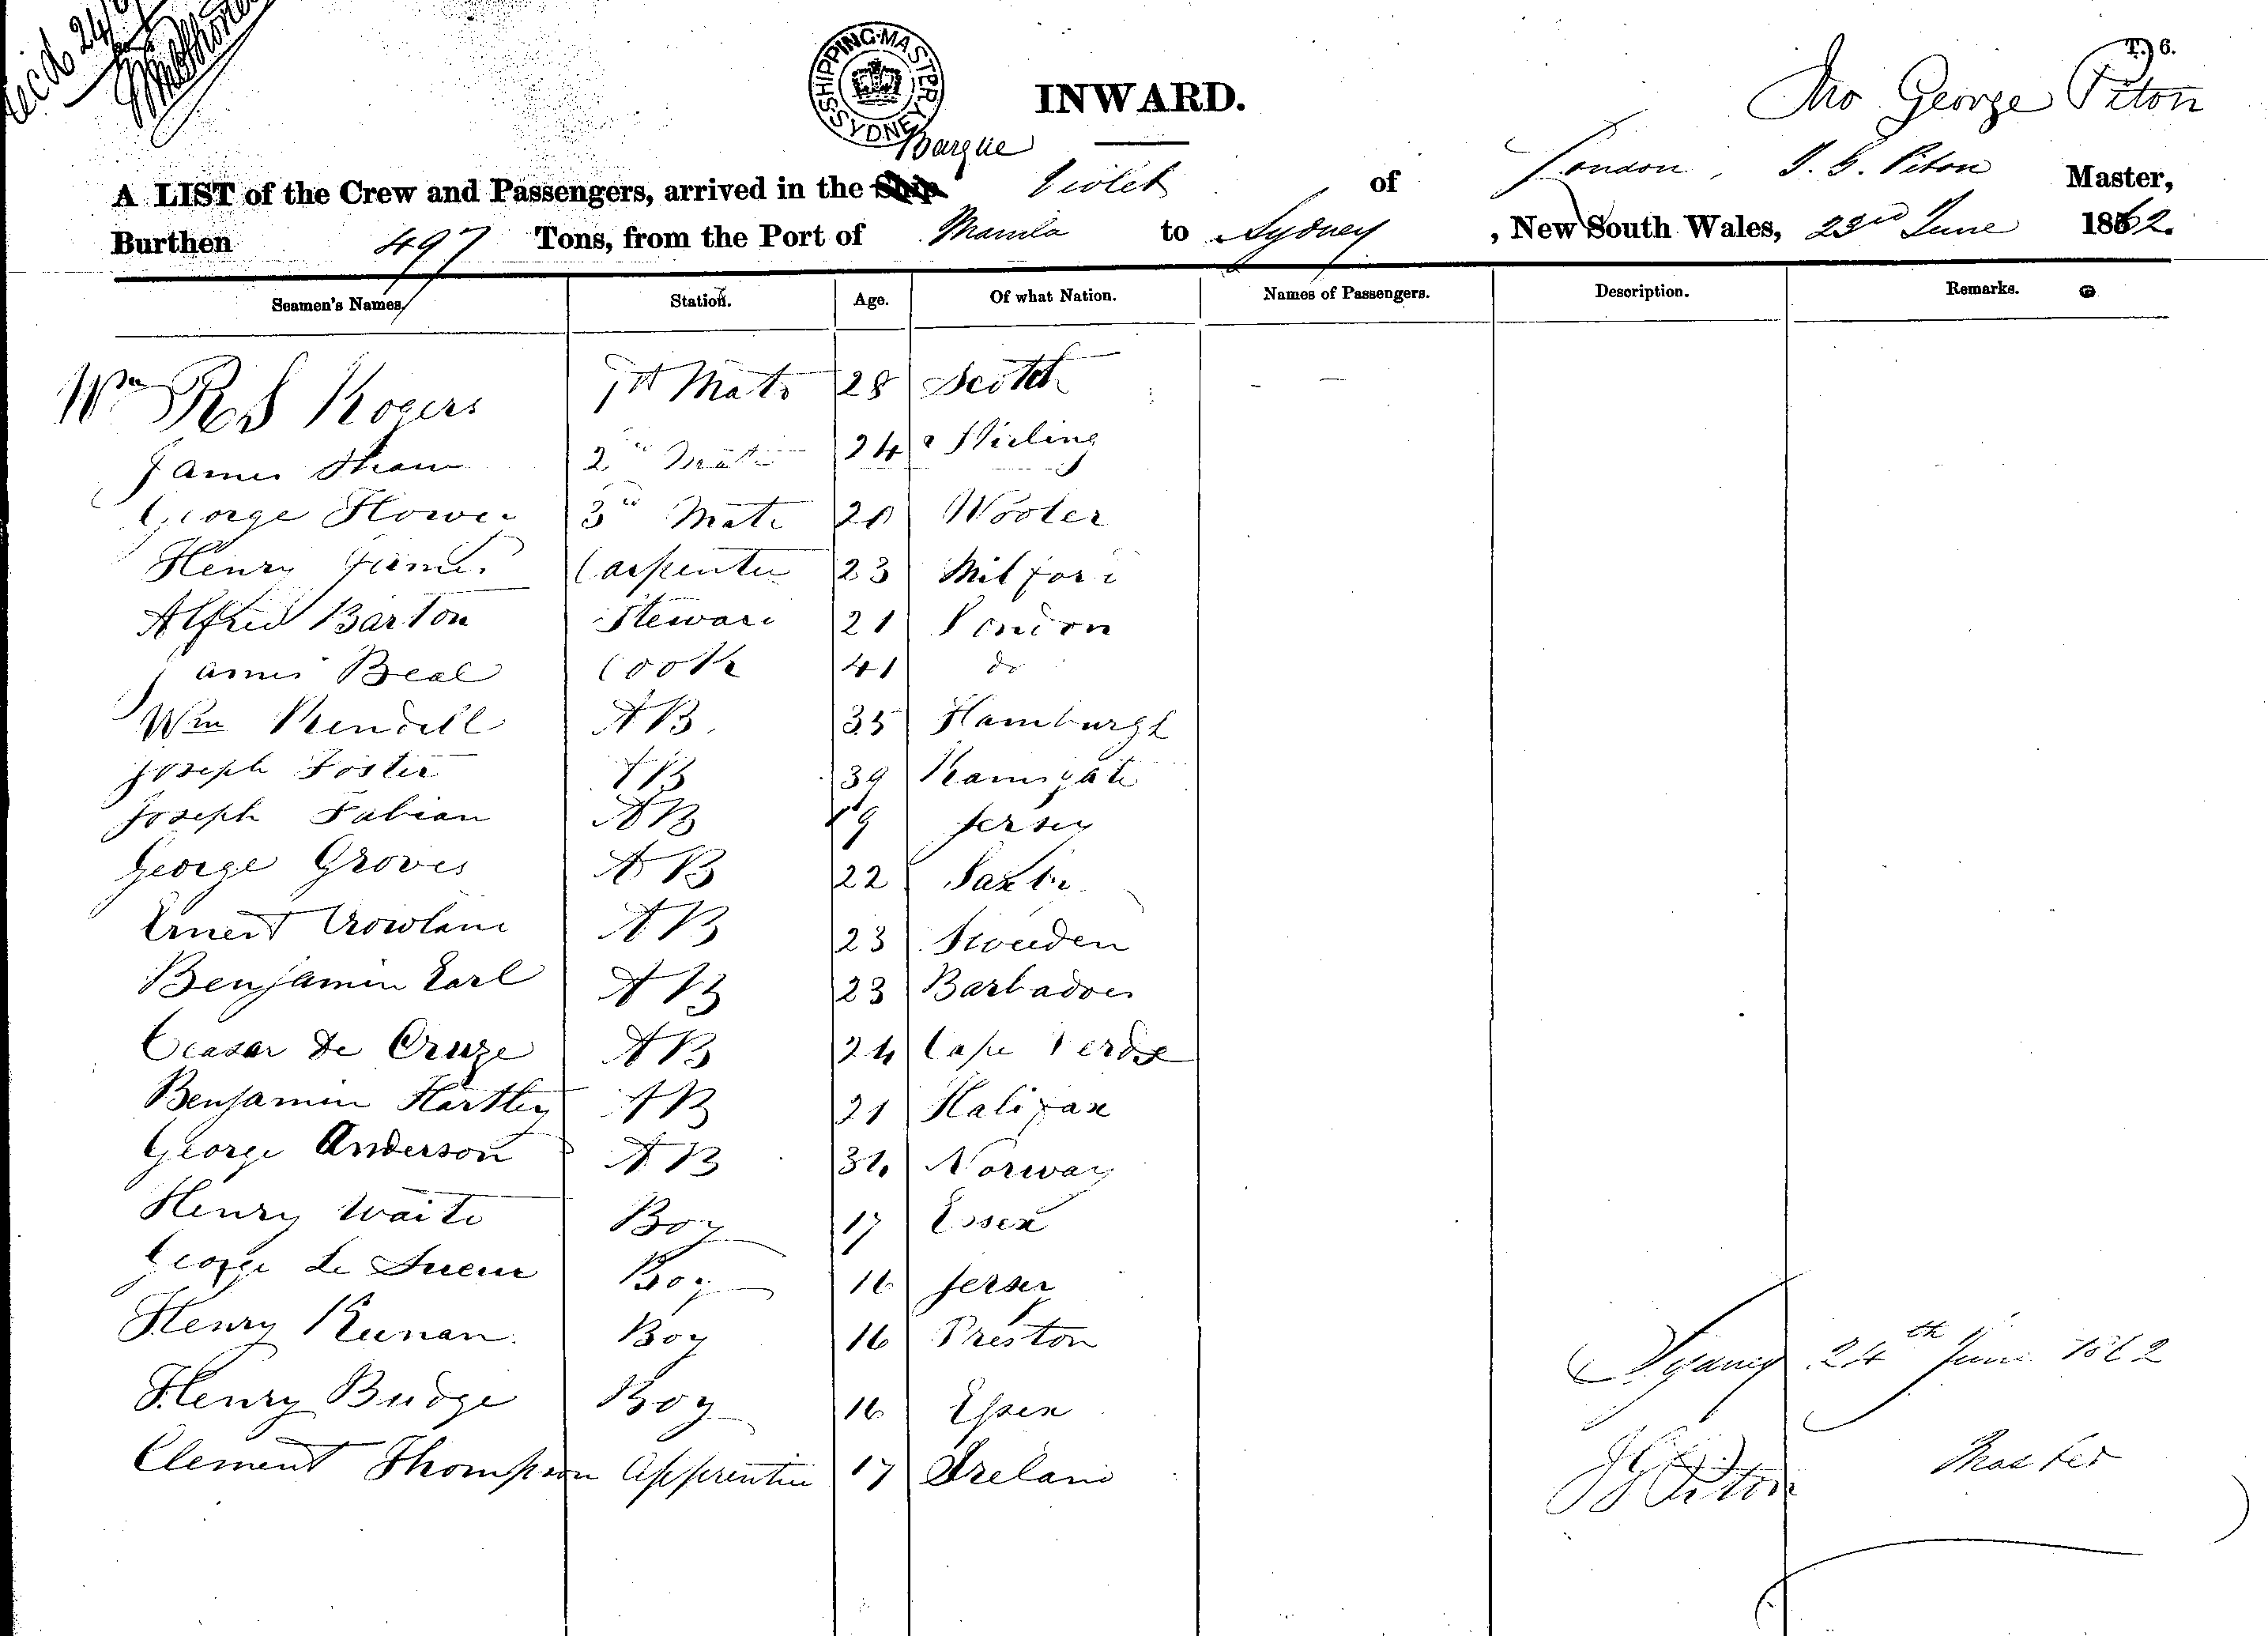 Recd 24/6
T. 6.
SHIPPING MASTER SYDNEY
INWARD.
Jno George Piton
Barque
A LIST of the Crew and Passengers, arrived in the Ship Violet of London, J. G. Piton Master,
Burthen 497 Tons, from the Port of Manila to Sydney, New South Wales, 23rd June 1862.
Seamen's Names. Station. Age. Of what Nation. Names of Passengers. Description. Remarks.
Wm R S Rogers 1st Mate 28 Scotch
James Shaw 2nd Mate 24 Stirling
George Flower 3rd Mate 20 Wooler
Henry Carpenter 23 Milford
Alfred Barton Steward 21 London
James Beal Cook 41 do
Wm Rendell AB. 35 Hamburgh
Joseph Foster AB 39 Ramsgate
Joseph Fabian AB 19 Jersey
George Groves AB 22
Ernest AB 23 Sweeden
Benjamin Earl AB 23 Barbadoes
Ceasar de Cruze AB 24 Cape Verde
Benjamin Hartley AB 21 Halifax
George Anderson AB Norway
Henry Waite Boy 17 Essex
George Le Sueur Boy 16 Jersey
Henry Keenan. Boy 16 Preston
Henry Budge Boy 16 Essex
Clement Thompson Apprentice 17 Ireland
Sydney 24th June 1862
J G Piton Master